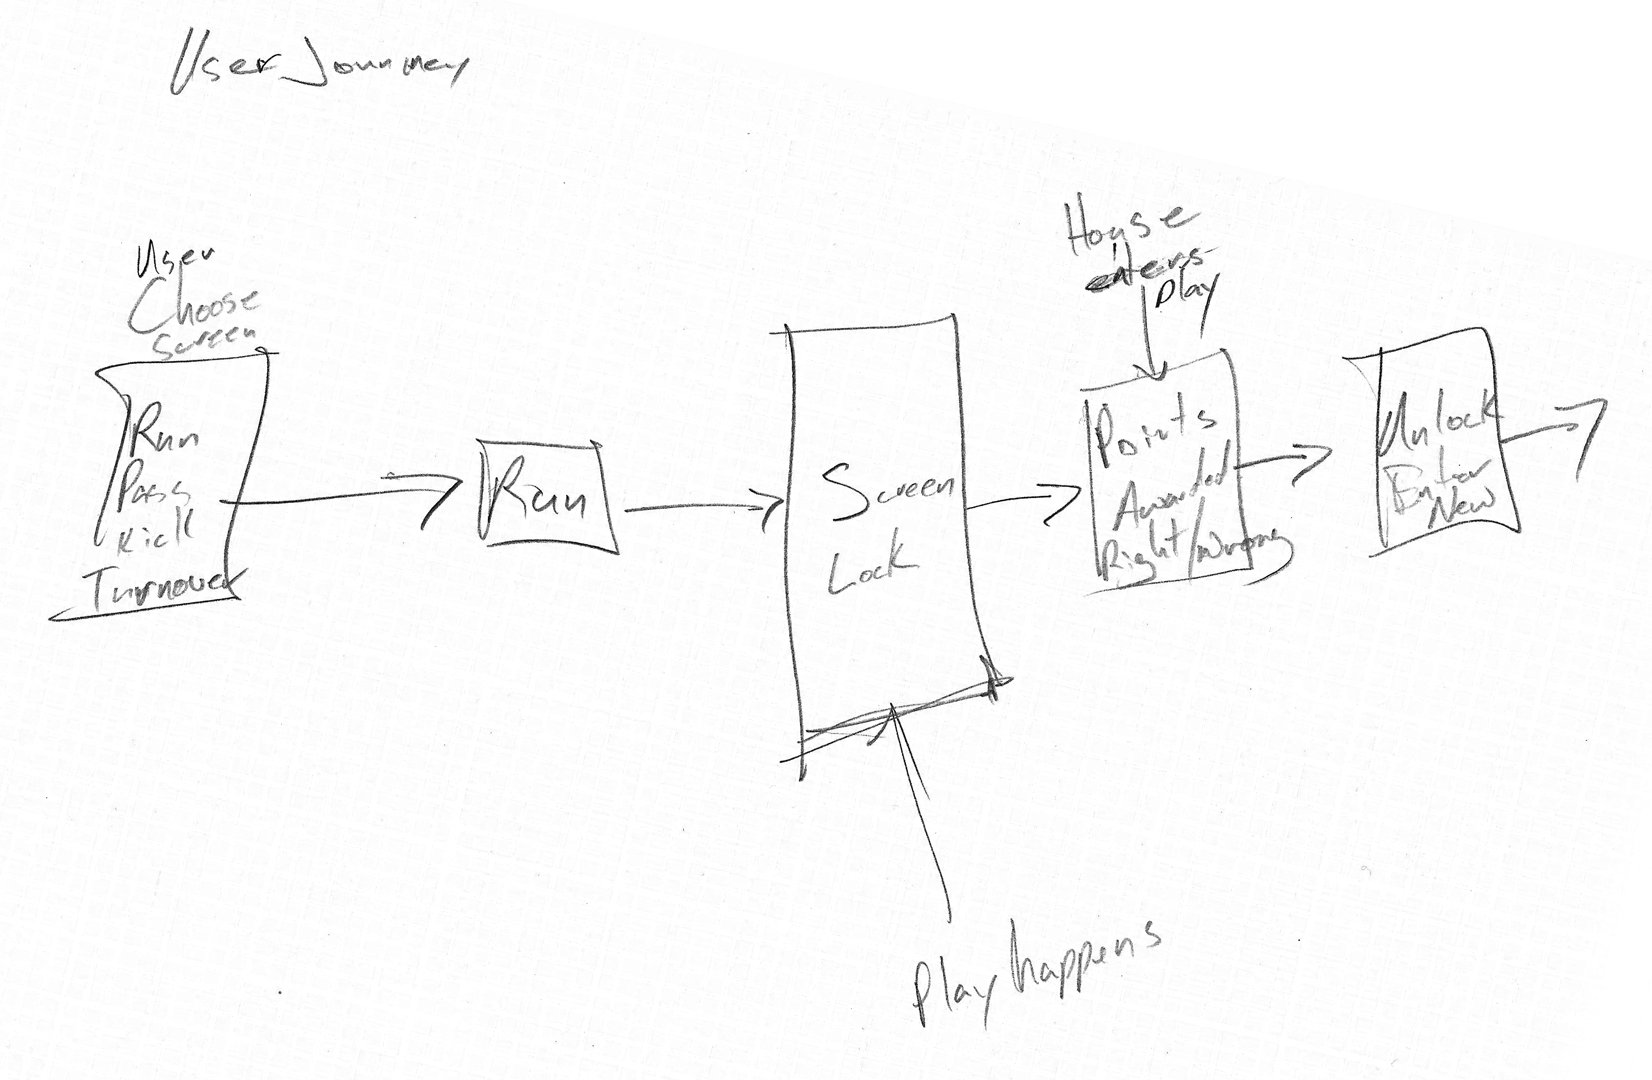 User Journey
User
Choose
Screen
Run
Pass
Kick
Turnover
Run
Screen
Lock
Play happens
House
enters
Play
Points
Awarded
Right/Wrong
Unlock
Enter
New